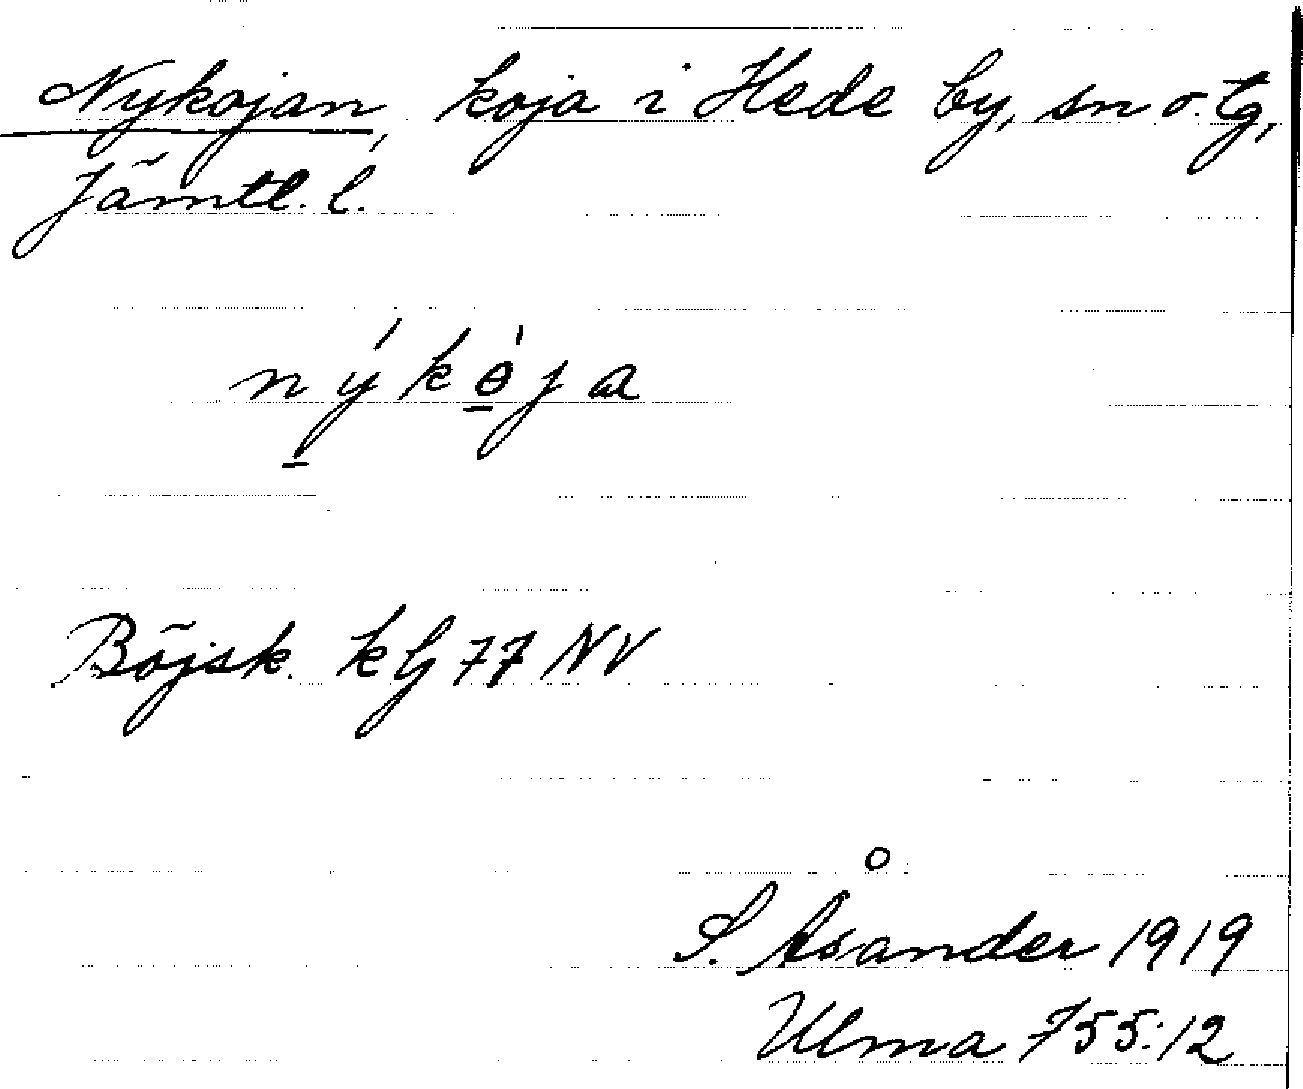 Nykojan, koja i Hede by, sn o. tg,
Jämtl. l.
n ý k ɵ́ j a
Böjsk. kbl 77 NV
S. Åsander 1919
Ulma 755:12